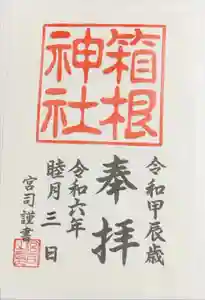 箱根
神社
令和甲辰歳
奉拝
令和六年
睦月三日
宮司謹書